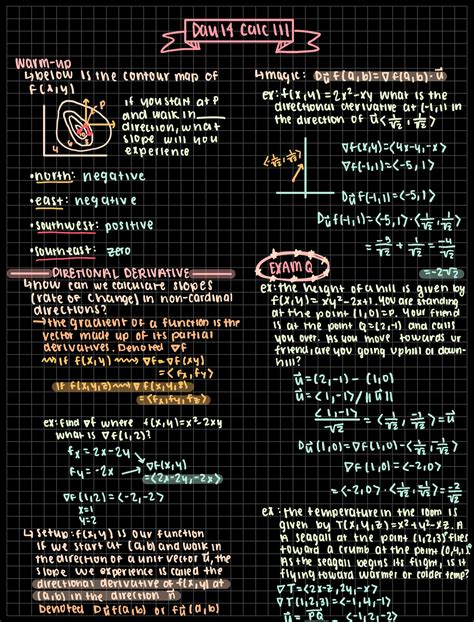 Day 14 Calc III
warm-up
↳ below is the contour map of
f(x,y)
P
if you start at P
and walk in ___
direction, what
slope will you
experience
• north: negative
• east: negative
• southwest: positive
• southeast: zero
DIRETIONAL DERIVATIVE
↳ how can we calculate slopes
(rate of change) in non-cardinal
directions?
→ the gradient of a function is the
vector made up of its partial
derivatives. Denoted ∇f
if f(x,y) ⟿ ∇f = ∇f(xy)
= <fx, fy>
if f(x,y,z) ⟿ ∇f(x,y,z)
= <fx, fy, fz>
ex: find ∇f where f(x,y)=x²-2xy
what is ∇f(1,2)?
fx = 2x-2y
fy = -2x
∇f(x,y)
= <2x-2y, -2x>
∇f(1,2) = <-2,-2>
x=1
y=2
↳ setup: f(x,y) is our function
if we start at (a,b) and walk in
the direction of a unit vector u⃗, the
slope we experience is called the
directional derivative of f(x,y) at
(a,b) in the direction u⃗
Denoted Du⃗f(a,b) or fu⃗(a,b)
↳ magic: Du⃗f(a,b)=∇f(a,b)·u⃗
ex: f(x,y) = 2x²-xy what is the
directional derivative at (-1,1) in
the direction of u⃗<1/√2, 1/√2>
<1/√2, 1/√2>
∇f(x,y)=<4x-y,-x>
∇f(-1,1)=<-5,1>
Du⃗f(-1,1)=<-5,1>·<1/√2, 1/√2>
= -5/√2 + 1/√2 = -4/√2
= -2√2
EXAM Q
ex: the height of a hill is given by
f(x,y) = xy²-2x+1. you are standing
at the point (1,0)=P. your friend
is at the point Q=(2,-1) and calls
you over. As you move towards ur
friend, are you going uphill or down-
hill?
u⃗ = (2,-1) - (1,0)
u⃗ = <1,-1>/||u⃗||
<1,-1>/√2 = <1/√2, -1/√2> = u⃗
Du⃗(1,0)=∇f(1,0)·<1/√2, -1/√2>
∇f(1,0)=<-2,0>
= <-2,0>·<1/√2, -1/√2> = -2/√2
ex: the temperature in the room is
given by T(x,y,z)=x²+y²-xz. A
A seagall at the point (1,2,3) flies
toward a crumb at the point (0,4,1)
As the seagall begins its flight, is it
flying toward warmer or colder temp?
∇T=<2x-z, 2y, -x>
∇T(1,2,3) = <-1,4,-1>
u⃗ = PQ = <-1,2,-2>